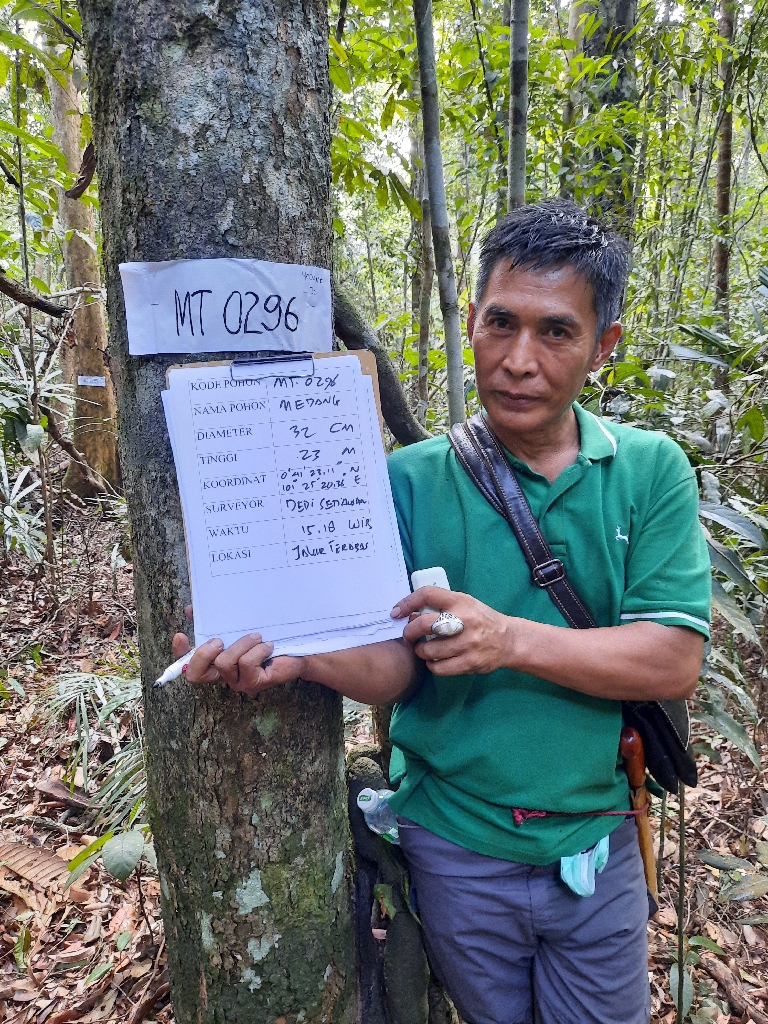 MT 0296
KODE POHON MT 0296
NAMA POHON MEDANG
DIAMETER 32 CM
TINGGI 23 M
KOORDINAT 0° 41' 23.11" N
101° 25' 20.36" E
SURVEYOR DEDI SETIAWAN
WAKTU 15.18 WIB
LOKASI JALUR